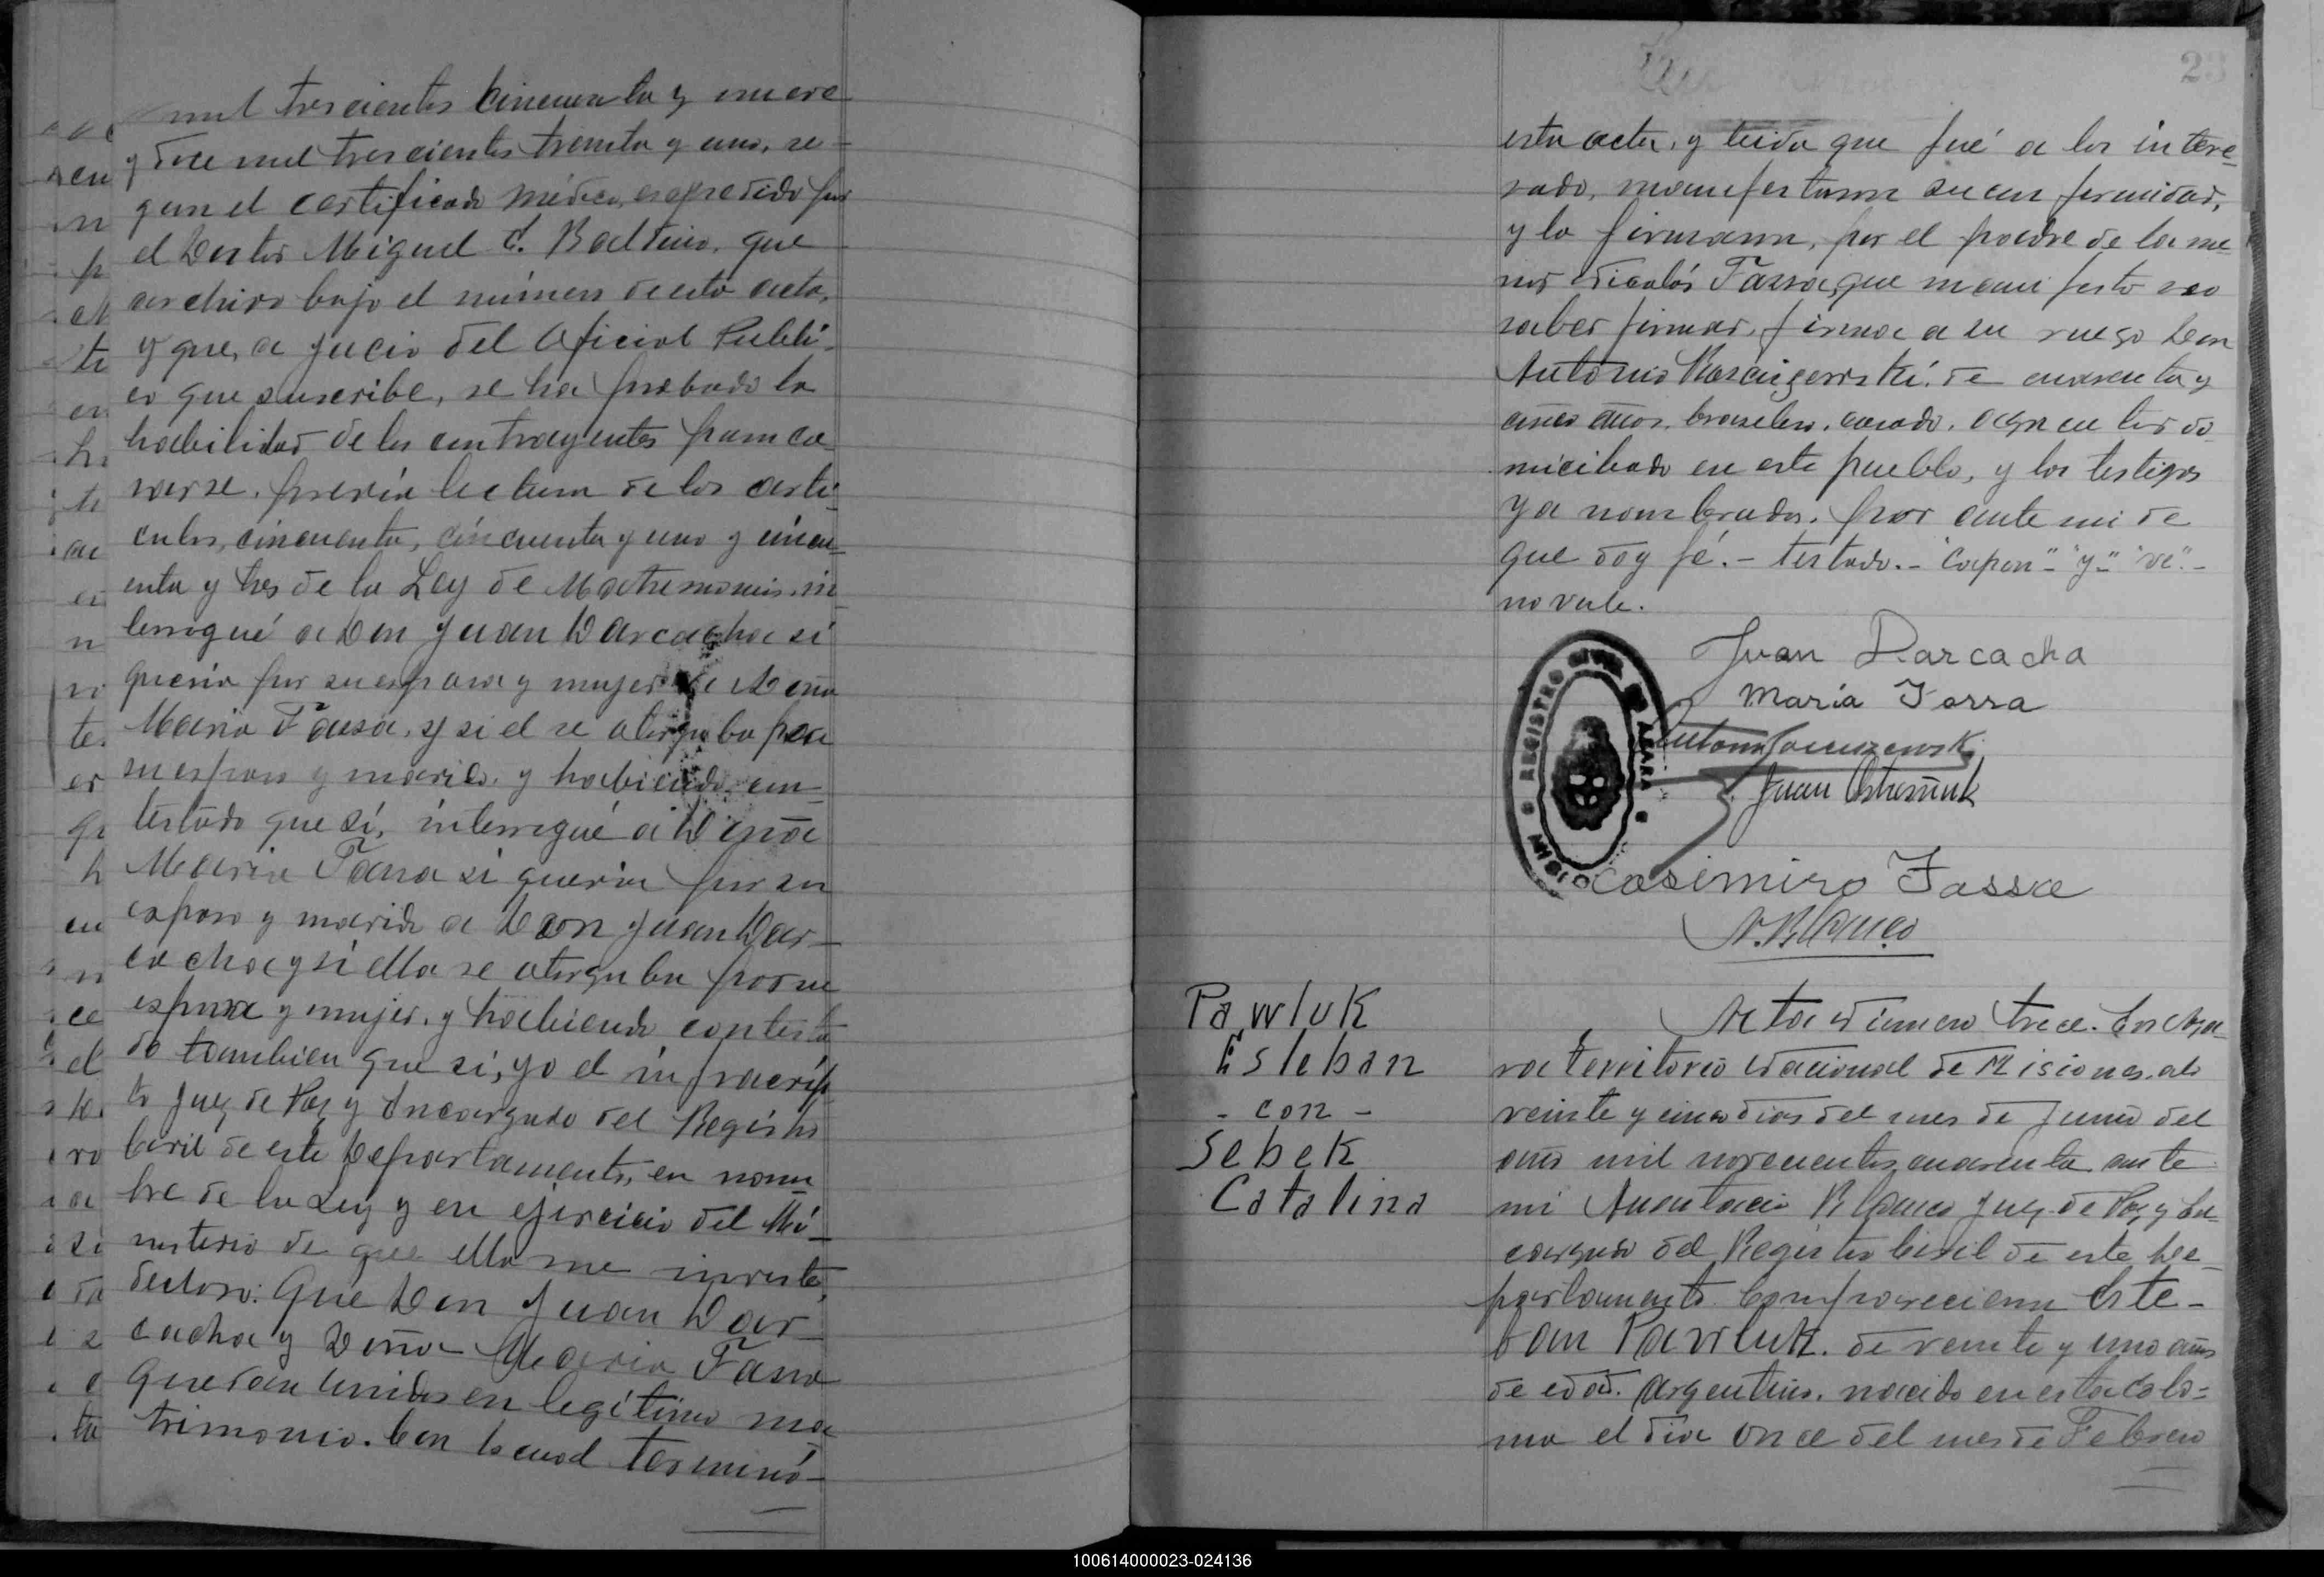 mil trescientos cincuenta y nueve
y doce mil trescientos treinta y uno, se-
gun el certificado médico, expedido por
el Doctor Miguel C. Baltino, que
archivo bajo el número de esta acta,
y que, a juicio del Oficial Públi-
co que suscribe, se ha probado la
habilidad de los contrayentes para ca-
sarse. previa lectura de los arti-
culos, cincuenta, cincuenta y uno y cincu-
enta y tres de la Ley de Matrimonio, in-
terrogué a Don Juan Darcacha si
queria por su esposa y mujer a Doña
Maria Tassa, y si el se otorgaba por
su esposo y marido, y habiendo con-
testado que sí, interrogué a Doña
Maria Tassa si queria por su
esposo y marido a Don Juan Dar-
cacha y si ella se otorgaba por su
esposa y mujer, y habiendo contesta-
do tambien que si, yo el infrascrip-
to Juez de Paz y Encargado del Registro
Civil de este Departamento, en nom-
bre de la Ley y en ejercicio del Mi-
nisterio de que ella me inviste,
declaro: Que Don Juan Dar-
cacha y Doña Maria Tassa
quedan unidos en legítimo ma-
trimonio. Con lo cual terminó
23
esta acta, y leida que fué a los intere-
sado, manifestaron su conformidad,
y la firmaron, por el padre de la me-
nor Nicolás Tassa, que manifestó no
saber firmar, firma a su ruego Don
Antonio de cuarenta y
cinco años, brasilero, casado, agricultor do-
miciliado en este pueblo, y los testigos
ya nombrados. por ante mi de
que doy fé.- testado.- "Capon"- "y"- "ve".-
no vale.
Juan Darcacha
María Tassa
Juan
REGISTRO CIVIL DE AZARA
MISIONES
Casimiro Tassa
A. Blanco
Pawluk
Esteban
- con -
Sebek
Catalina
Acta Número trece. En Aza-
ra Territorio Nacional de Misiones, a los
veinte y cinco dias del mes de Junio del
año mil novecientos cuarenta ante
mi Anastacio Blanco Juez de Paz y En-
cargado del Registro Civil de este De-
partamento Comparecieron Este-
ban Pawluk. de veinte y uno años
de edad. argentino. nacido en esta Colo=
nia el dia once del mes de Febrero
100614000023-024136